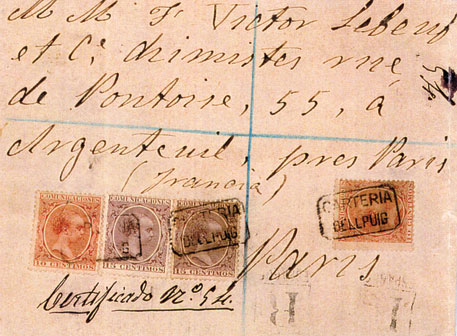 M M F. Victor Lebeuf
et Cie. chimistes rue
de Pontoise, 55, à
Argenteuil, près Paris
(Francia)
COMUNICACIONES
10 CENTIMOS
COMUNICACIONES
15 CENTIMOS
COMUNICACIONES
15 CENTIMOS
CARTERIA
BELLPUIG
CARTERIA
BELLPUIG
Paris
Certificado Nº 54.
R